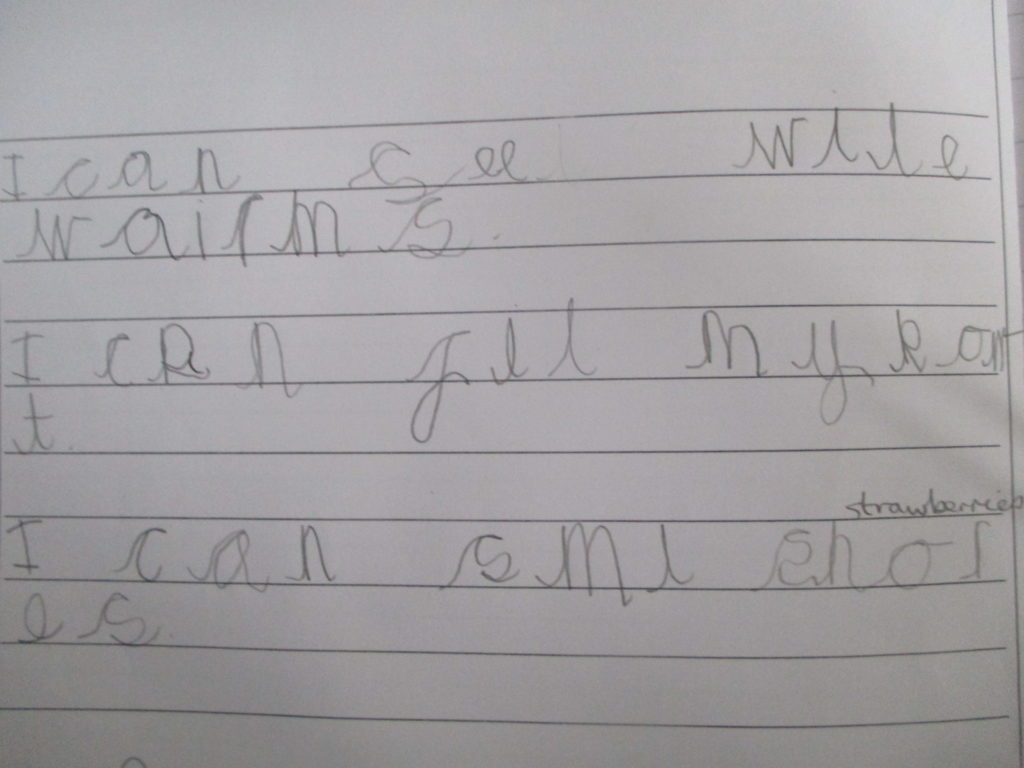 I can see wlle
wairms.
I can fll my kom
t.
strawberries
I can sml shor
es.